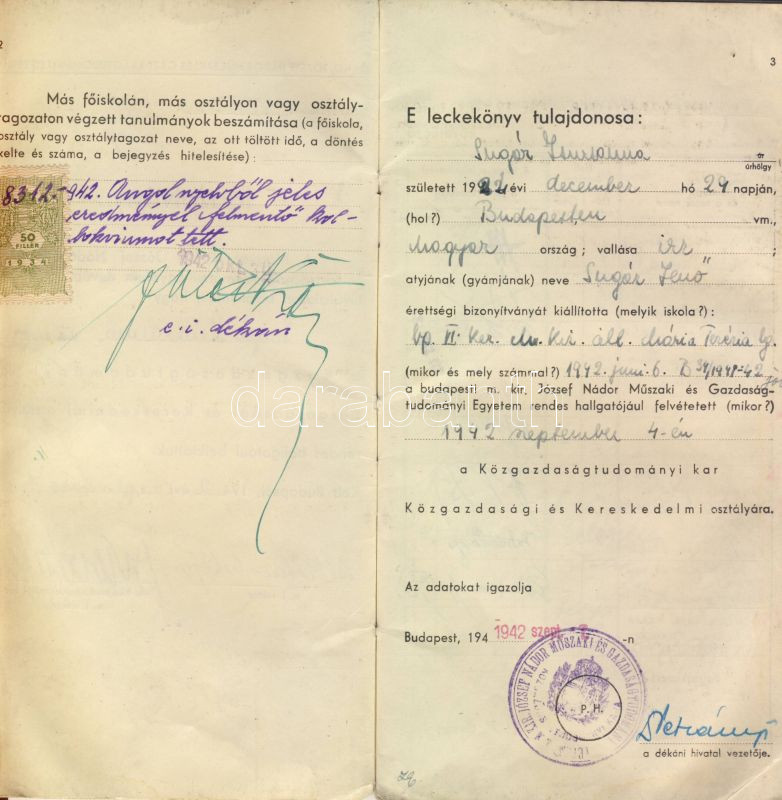 2
Más főiskolán, más osztályon vagy osztály-
tagozaton végzett tanulmányok beszámítása (a főiskola,
osztály vagy osztálytagozat neve, az ott töltött idő, a döntés
kelte és száma, a bejegyzés hitelesítése) :
8312.-942. Angol nyelvből jeles
eredménnyel felmentő kol-
lokviumot tett.
50
FILLÉR
1934
e. i. dékán
3
E leckekönyv tulajdonosa :
Sugár Zsuzsanna úr
úrhölgy
született 1924 évi december hó 29 napján,
(hol?) Budapesten vm.,
Magyar ország ; vallása izr ;
atyjának (gyámjának) neve Sugár Jenő
érettségi bizonyítványát kiállította (melyik iskola?) :
bp. II. ker. M. kir. áll. Mária Terézia lg.
(mikor és mely számmal?) 1942. juni. 6. B 34/1941-42
a budapesti m. kir. József Nádor Műszaki és Gazdaság-
tudományi Egyetem rendes hallgatójául felvétetett (mikor?)
1942 szeptember 4-én
a Közgazdaságtudományi kar
Közgazdasági és Kereskedelmi osztályára.
Az adatokat igazolja
Budapest, 194 1942 szept. -n
M. KIR. JÓZSEF NÁDOR MŰSZAKI ÉS GAZDASÁGTUDOMÁNYI
P. H.
a dékáni hivatal vezetője.
darabanth